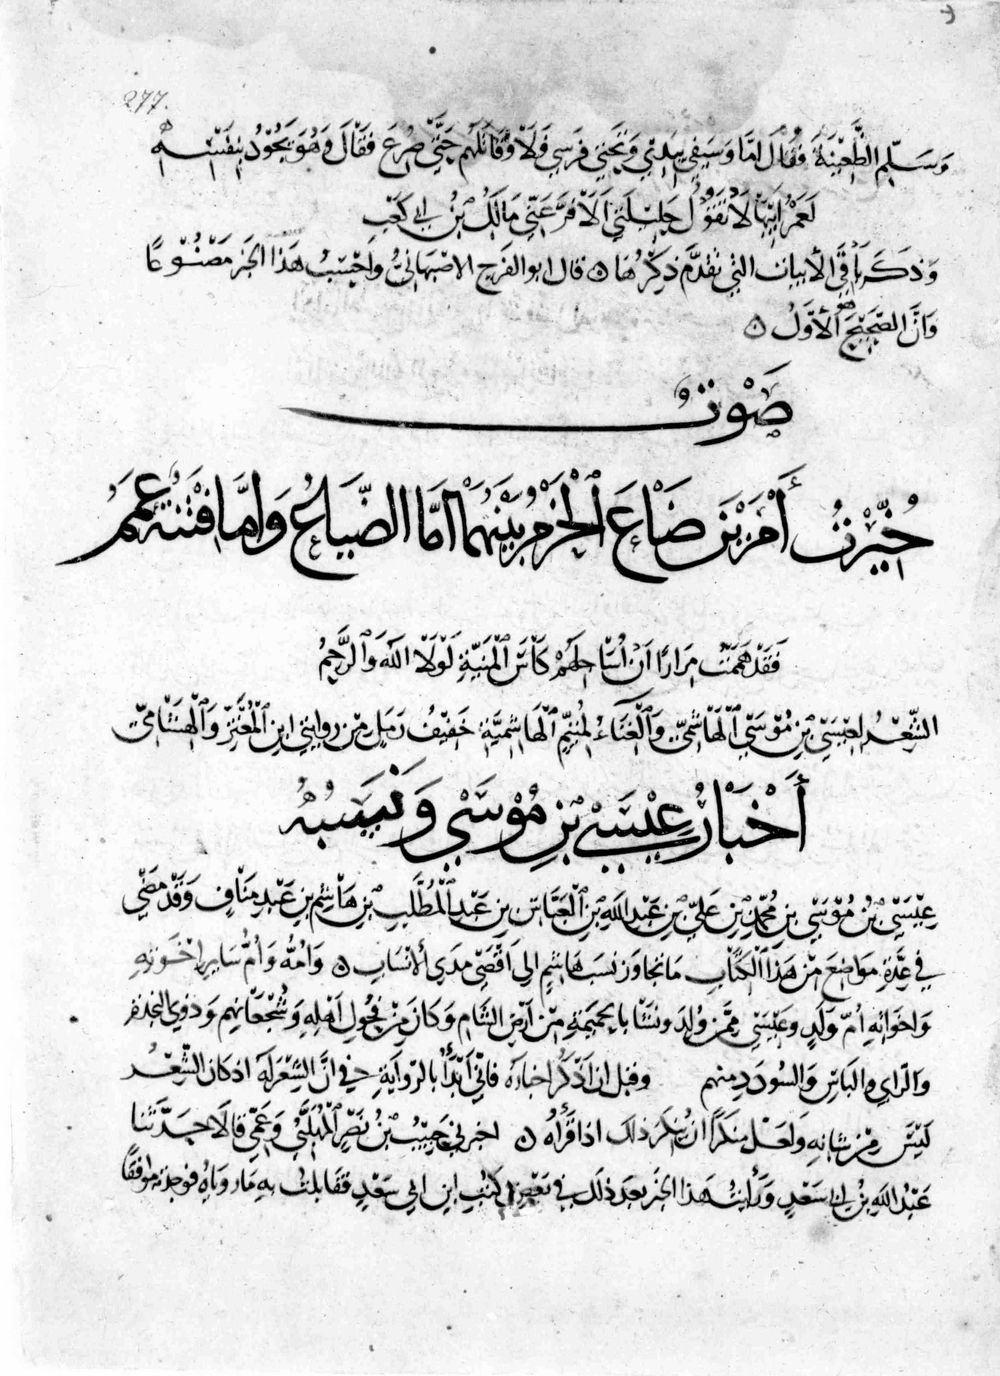 277.
وَسَلِّمِ الظَّعِينَةَ فَقَالَ امَا وَسَيْفِي بِيَدِي وَتَحْتِي فَرَسِي فَلَا وَقَاتَلَهُمْ حَتَّى صُرِعَ فَقَالَ وَهُوَ يَجُوْدُ بِنَفْسِهِ
لَعَمْرُ ابِيهَا لَا تَقُولُ حَلِيْلَتِي اَلَا فَرَّ عَنِّي مَالِكُ بْنُ ابي كَعْبِ
وَذَكَرَ بَاقِيَ الأبيات التي تقدَّم ذِكْرُهَا ۞ قال ابو الفرج الاصبهانيُّ وَاَحْسِبُ هذا الخبَر مَصْنُوعًا
وَاَنَّ الصَّحِيْحَ هُوَ الأَوَّلُ ۞
صَوْتٌ
خُيِّرْتُ أَمْرَيْنِ ضَاعَ ٱلْحَزْمُ بَيْنَهُمَا اِمَّا الضَّيَاعُ وَاِمَّا فِتْنَةٌ عَمَمُ
فَقَدْ هَمَمْتُ مِرَارًا اَنْ اُسَاجِلَهُمْ كَأسَ ٱلْمَنِيَّةِ لَوْلَا اللهُ وَالرَّحِمُ
الشِّعْرُ لِعِيْسَى بْنِ مُوْسَى ٱلْهَاشِمِيّ وَٱلْغِنَاءُ لِمُتَيَّمَ ٱلْهَاشِمِيَّةِ خَفِيْفُ رَمَلٍ مِنْ روايتي ابن ٱلْمُعْتَزّ وَٱلْهِشَامِيّ
أَخْبَارُ عِيْسَى بْنِ مُوْسَى وَنَسَبُهُ
عِيْسَى بْنُ مُوْسَى بن مُحَمَّدِ بْنِ عَلِيّ بْنِ عَبْدِ اللهِ بْنِ ٱلْعَبَّاسِ بنِ عَبْدِ ٱلْمُطَّلِبِ بْنِ هَاشِمِ بنِ عَبْدِ مَنَافٍ وَقَدْ مَضَى
في عِدَّةِ مَوَاضِعَ مِنْ هَذَا ٱلْكِتَابِ مَا تجاوز نسَبَ هَاشِمٍ الى اَقْصَى مَدَى الأَنْسَابِ ۞ وَاُمُّهُ وَاُمُّ سَايِر اِخْوَتِهِ
وَاخَوَاتِهِ اُمّ وَلَدٍ وعِيْسَى مِمَّنْ وُلِدَ ونَشَأ بالحُمَيْمَةِ مِنْ اَرْضِ الشَّام وَكَانَ مِنْ فُحُولِ اَهْلِهِ وَشُجْعَانِهِم وَذوي النجدةِ
والرّاي والبَاسِ والسودَدِ منهم وقبل ان اَذْكُرَ اخبارَهُ فاني اَبْدَأُ بالرّوَايَةِ في اَنَّ الشّعْرَ لَهُ اذ كان الشّعْرُ
لَيْسَ مِنْ شَانِهِ وَلَعَلَّ مُنْكِرًا انْ يُنْكِرَ ذلك اذا قَرَأَهُ ۞ اخبرني حَبِيْبُ بْنُ نَصْرٍ ٱلْمُهَلَّبِيُّ وَعَمِّي قالَا حَدَّثنَا
عَبْدُ اللهِ بْنُ ابي سَعْدٍ وَرَأَيْتُ هَذا الخبَر بَعدَ ذَلِكَ في بَعْضِ كُتُبِ ابْنِ ابي سَعْدٍ فَقَابَلْتُ بِهِ مَا رَوَيَاهُ فوجدتُهُ موافقًا